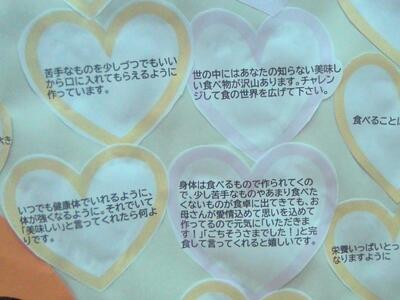 苦手なものを少しづつでもいい
から口に入れてもらえるように
作っています。
世の中にはあなたの知らない美味し
い食べ物が沢山あります。チャレン
ジして食の世界を広げて下さい。
食べることに
大き
いつでも健康体でいれるように、
体が強くなるように。それでいて
「美味しい」と言ってくれたら何よ
りです。
身体は食べるもので作られてくの
で、少し苦手なものやあまり食べた
くないものが食卓に出てきても、お
母さんが愛情込めて思いを込めて
作ってるので元気に「いただきま
す！」「ごちそうさまでした！」と完
食して言ってくれると嬉しいです。
栄養いっぱいとっ
なりますように